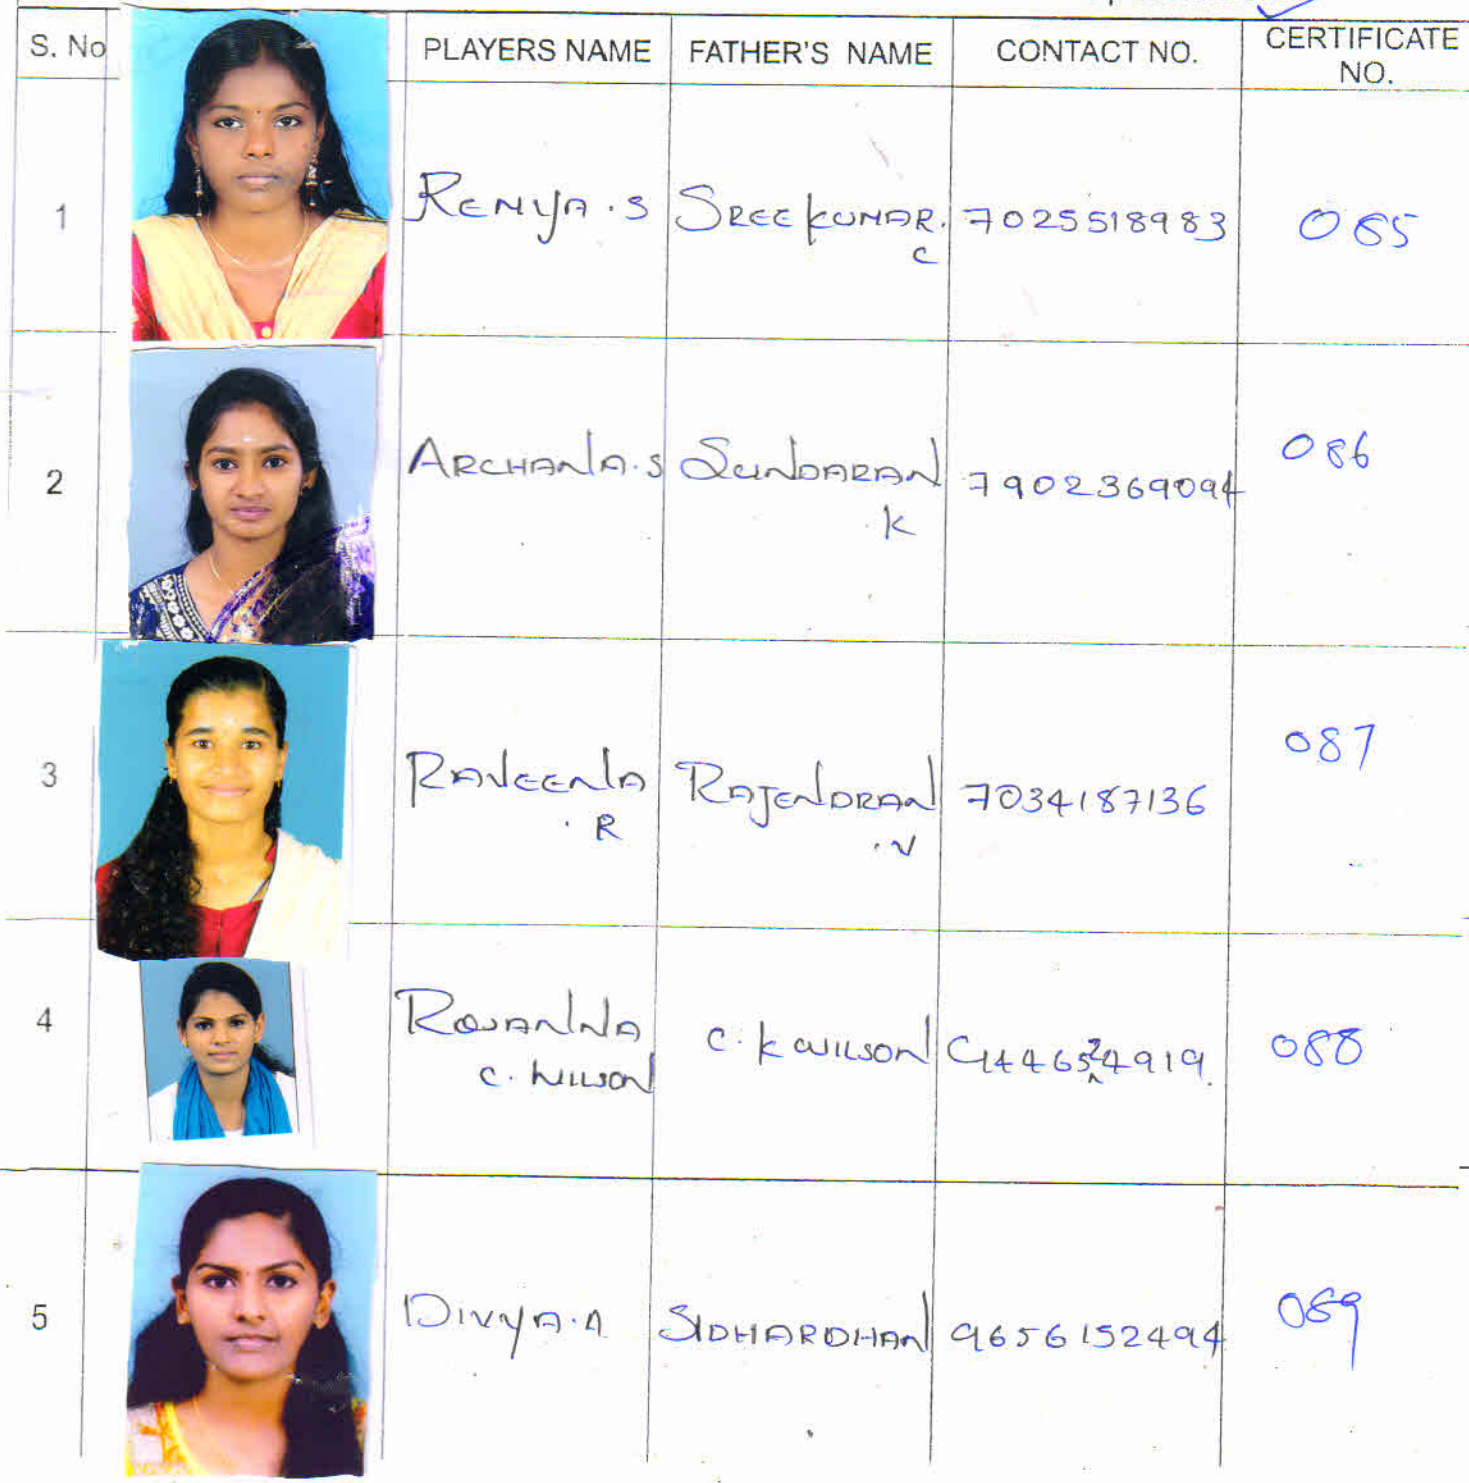 S. No PLAYERS NAME FATHER'S NAME CONTACT NO. CERTIFICATE NO.
1 RENYA.S SREEKUMAR. C 7025518983 085
2 ARCHANA.S SUNDARAN .K 7902369094 086
3 RAVEENA .R RAJENDRAN .V 7034187136 087
4 ROSANNA C. WILSON C.K WILSON 9446524919. 088
5 DIVYA.A SIDHARDHAN 9656152494 089